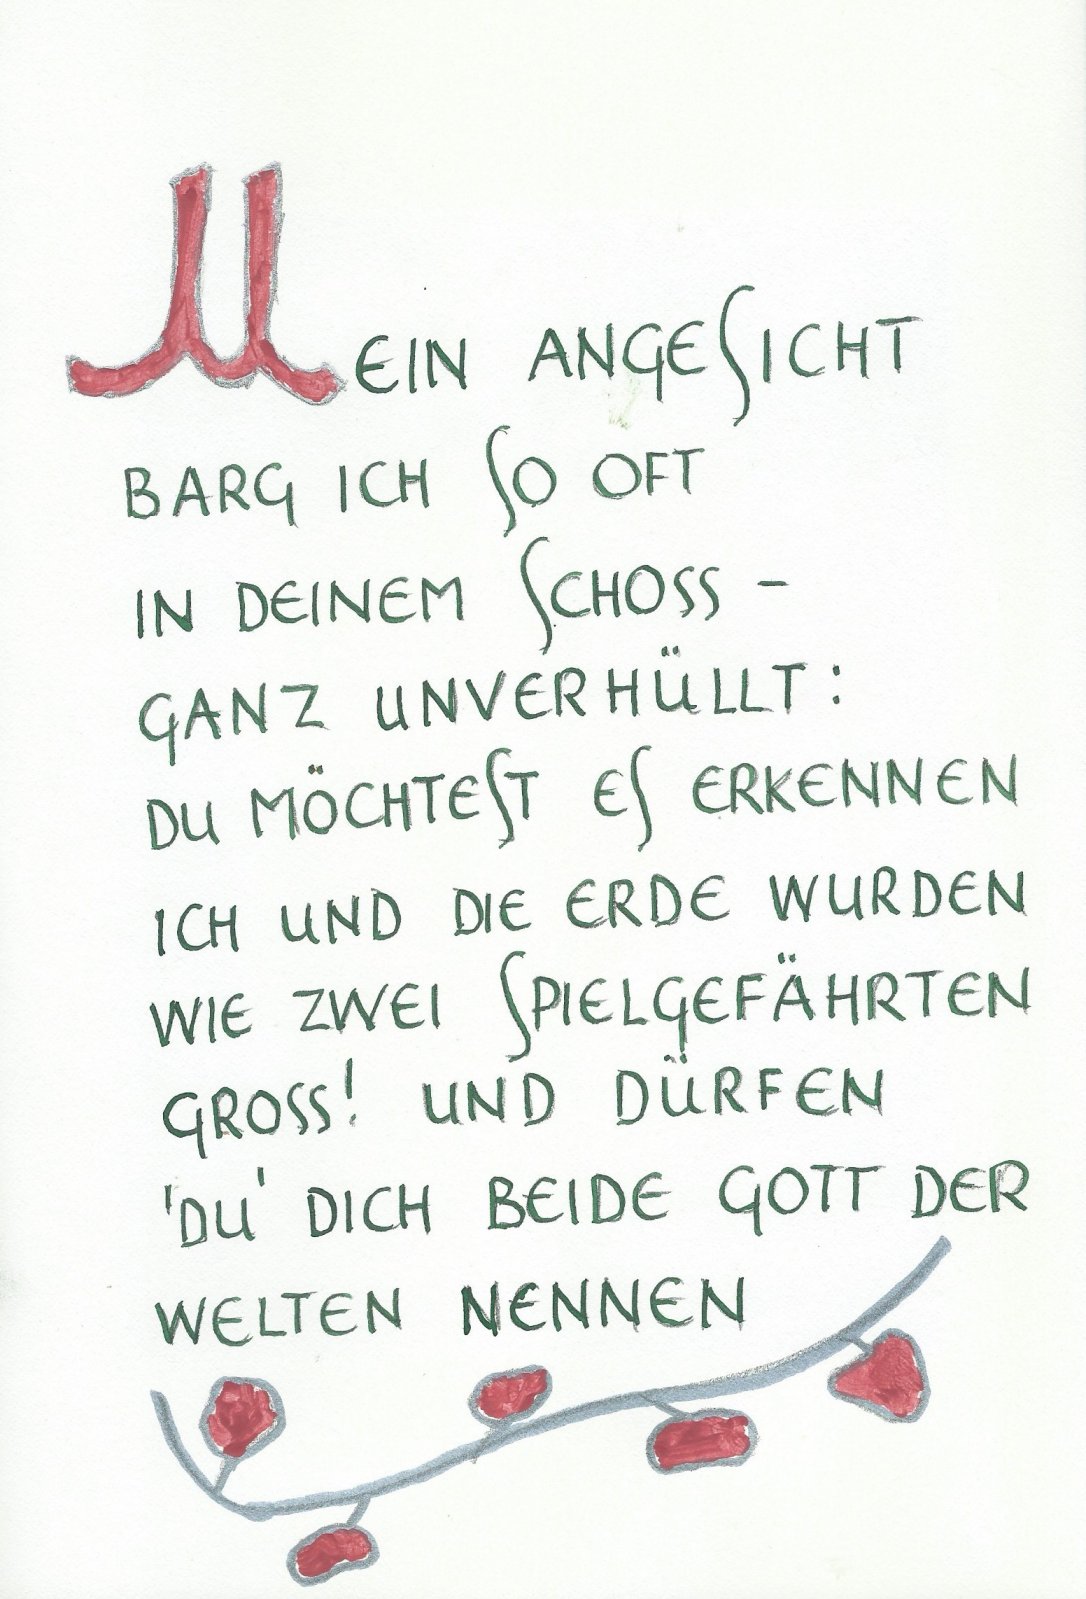 MEIN ANGESICHT
BARG ICH SO OFT
IN DEINEM SCHOSS –
GANZ UNVERHÜLLT:
DU MÖCHTEST ES ERKENNEN
ICH UND DIE ERDE WURDEN
WIE ZWEI SPIELGEFÄHRTEN
GROSS! UND DÜRFEN
'DU' DICH BEIDE GOTT DER
WELTEN NENNEN